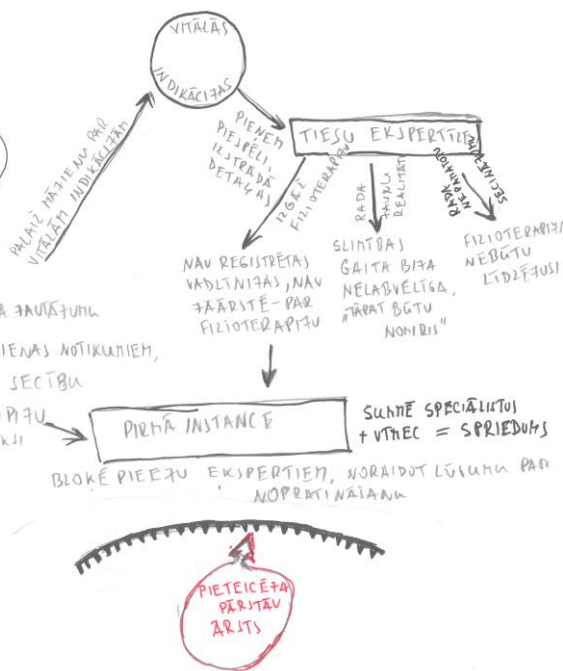 VITĀLĀS
INDIKĀCIJAS
PALAIŽ MĀJIENU PAR
VITĀLĀM INDIKĀCIJĀM
PIEŅEM
PIESPĒLI,
IZSTRĀDĀ
DETAĻĀS
TIESU EKSPERTĪZE
IZGĀŽ
FIZIOTERAPIJU
RADA
JAUNU
REALITĀTI
RADA
NEPAMATOTU
SECINĀJUMU
NAV REĢISTRĒTAS
VADLĪNIJAS, NAV
JĀĀRSTĒ - PAR
FIZIOTERAPIJU
SLIMĪBAS
GAITA BIJA
NELABVĒLĪGA,
"TĀPAT BŪTU
NOMIRIS"
FIZIOTERAPIJA
NEBŪTU
LĪDZĒJUSI
JAUTĀJUMU
IENAS NOTIKUMIEM,
SECĪBU
PIJU
KSI
PIRMĀ INSTANCE
SUMMĒ SPECIĀLISTUS
+ VTMEC = SPRIEDUMS
BLOĶĒ PIEEJU EKSPERTIEM, NORAIDOT LŪGUMU PAR
NOPRATINĀŠANU
PIETEICĒJA
PĀRSTĀV
ĀRSTS